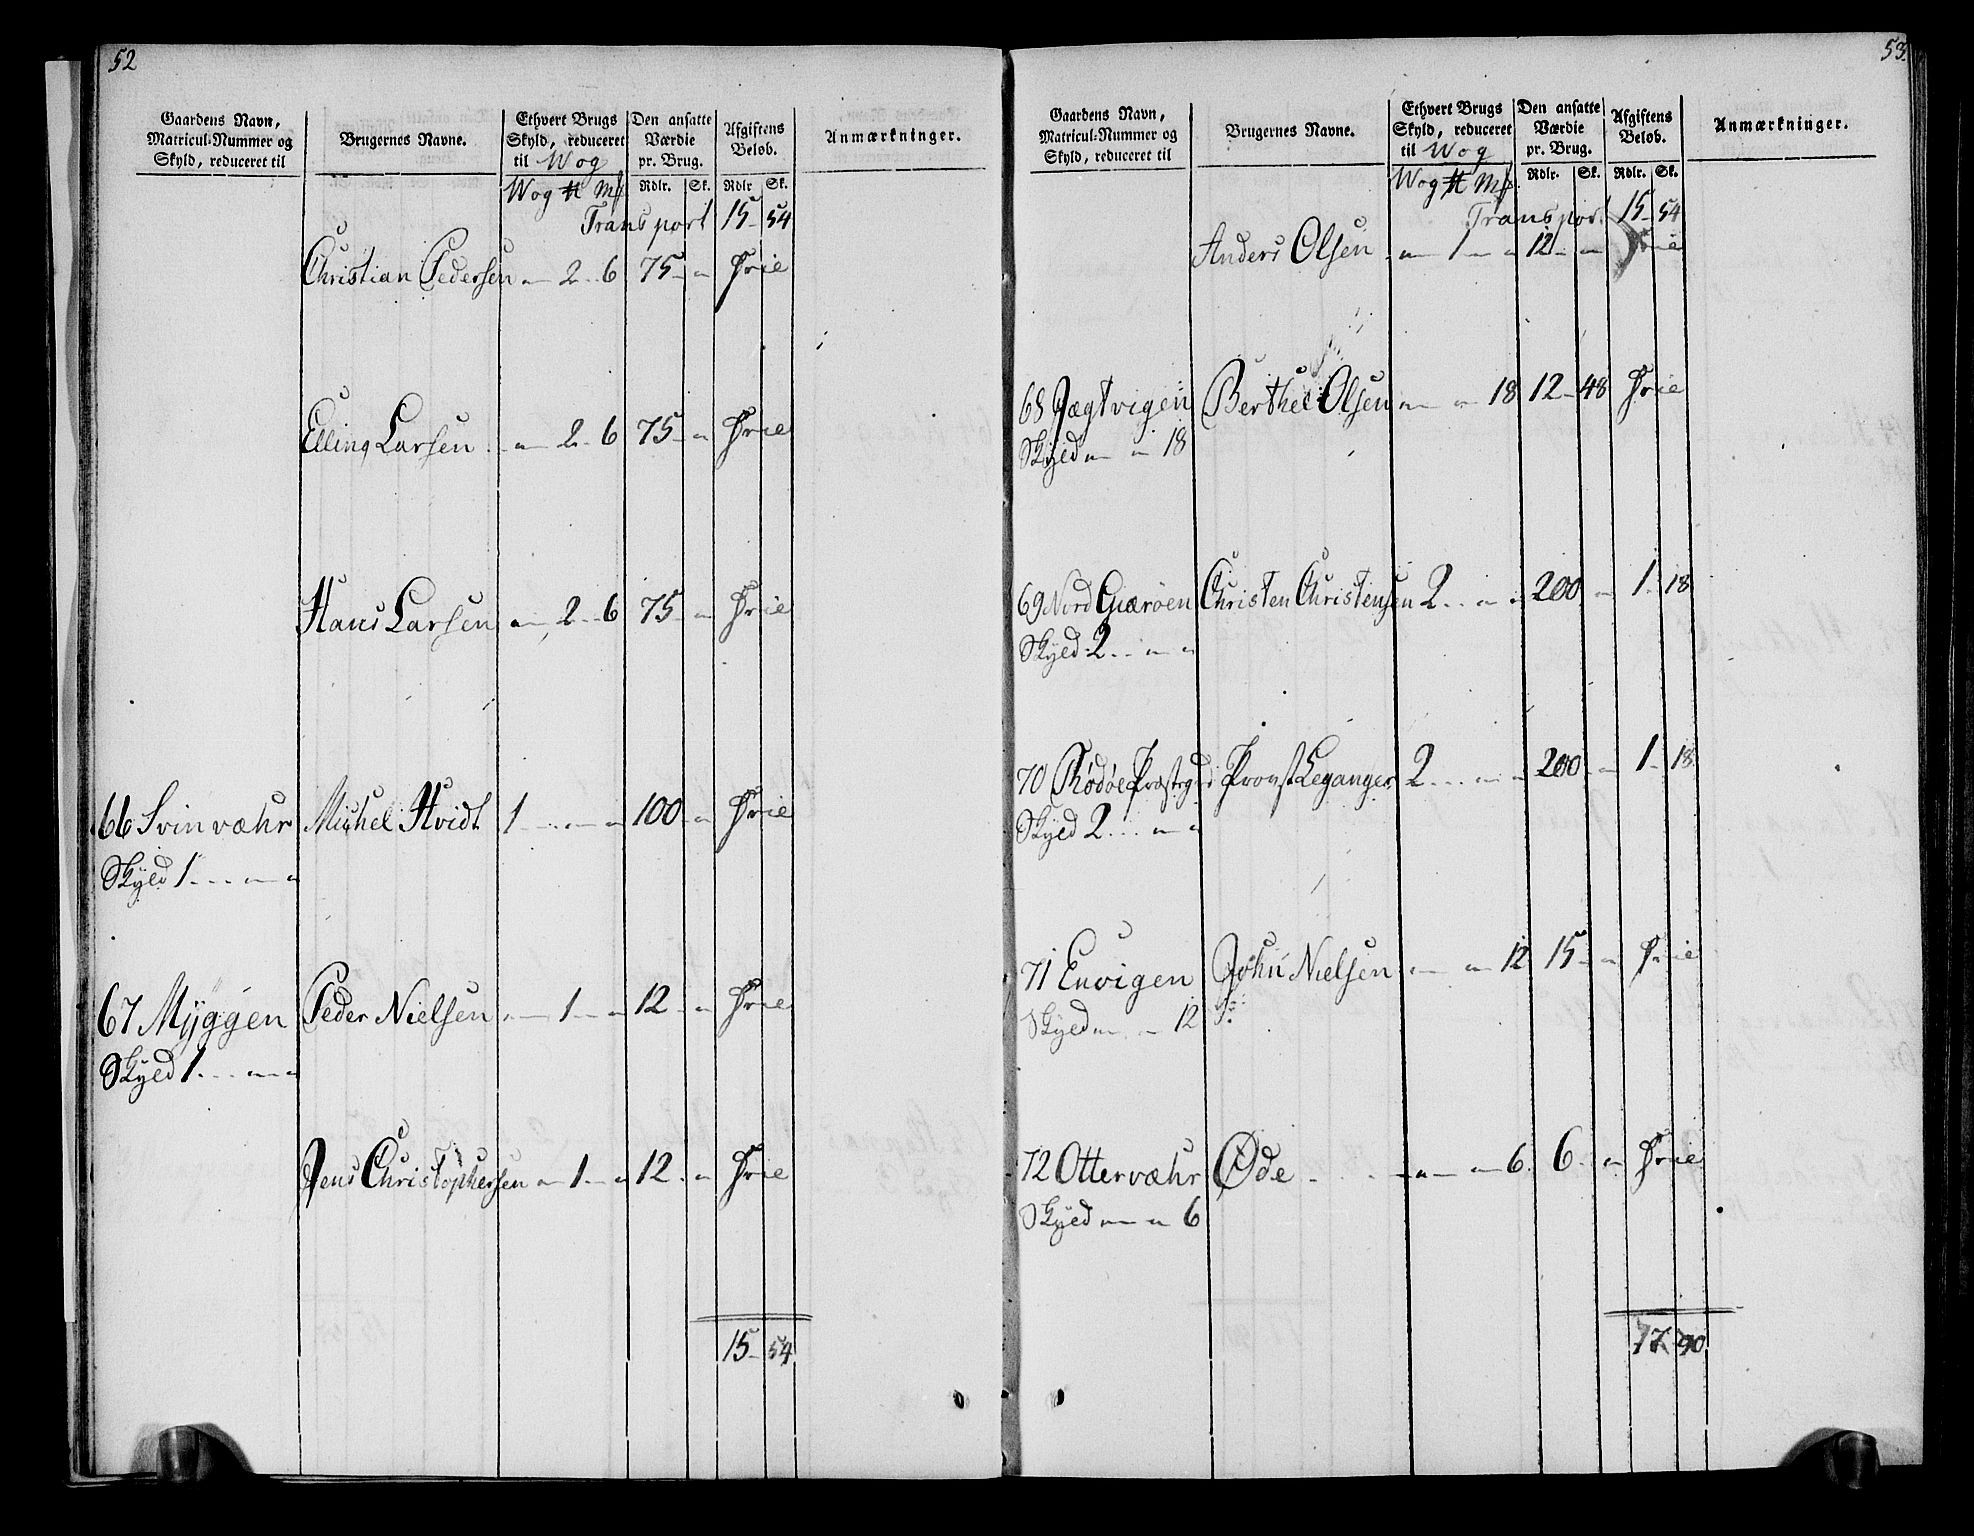 52
Gaardens Navn, Matricul-Nummer og Skyld, reduceret til
Brugernes Navne.
Ethvert Brugs Skyld, reduceret til Wog
Den ansatte Værdie pr. Brug.
Afgiftens Beløb.
Anmærkninger.
Wog ℔ Mk Rdlr. Sk. Rdlr Sk.
Transport 15 - 54
Christian Pedersen " 2 - 6 75 - " Frie
Elling Larsen " 2 - 6 75 - " Frie
Hans Larsen " 2 - 6 75 - " Frie
66 Svinvæhr Michel Hvidt 1 - " - " 100 - " Frie
Skyld 1 - " - "
67 Myggen Peder Nielsen " 1 - " 12 - " Frie
Skyld 1 - " - "
Jens Christophersen " 1 - " 12 - " Frie
15 - 54
53.
Gaardens Navn, Matricul-Nummer og Skyld, reduceret til
Brugernes Navne.
Ethvert Brugs Skyld, reduceret til Wog
Den ansatte Værdie pr. Brug.
Afgiftens Beløb.
Anmærkninger.
Wog ℔ Mk. Rdlr. Sk. Rdlr. Sk.
Transport 15 - 54
Anders Olsen " 1 - " 12 - " Frie
68 Jægtvigen Berthel Olsen " " 18 12 - 48 Frie
Skyld " " 18
69 Nord Giærøen Christen Christensen 2 - " " 200 - " 1 - 18
Skyld 2 - " "
70 Rødøe Præstegrd Provst Leganger 2 - " " 200 - " 1 - 18
Skyld 2 - " "
71 Envigen John Nielsen " " 12 15 - " Frie
Skyld " " 12
72 Ottervæhr Øde " " 6 6 - " Frie
Skyld " " 6
17 90